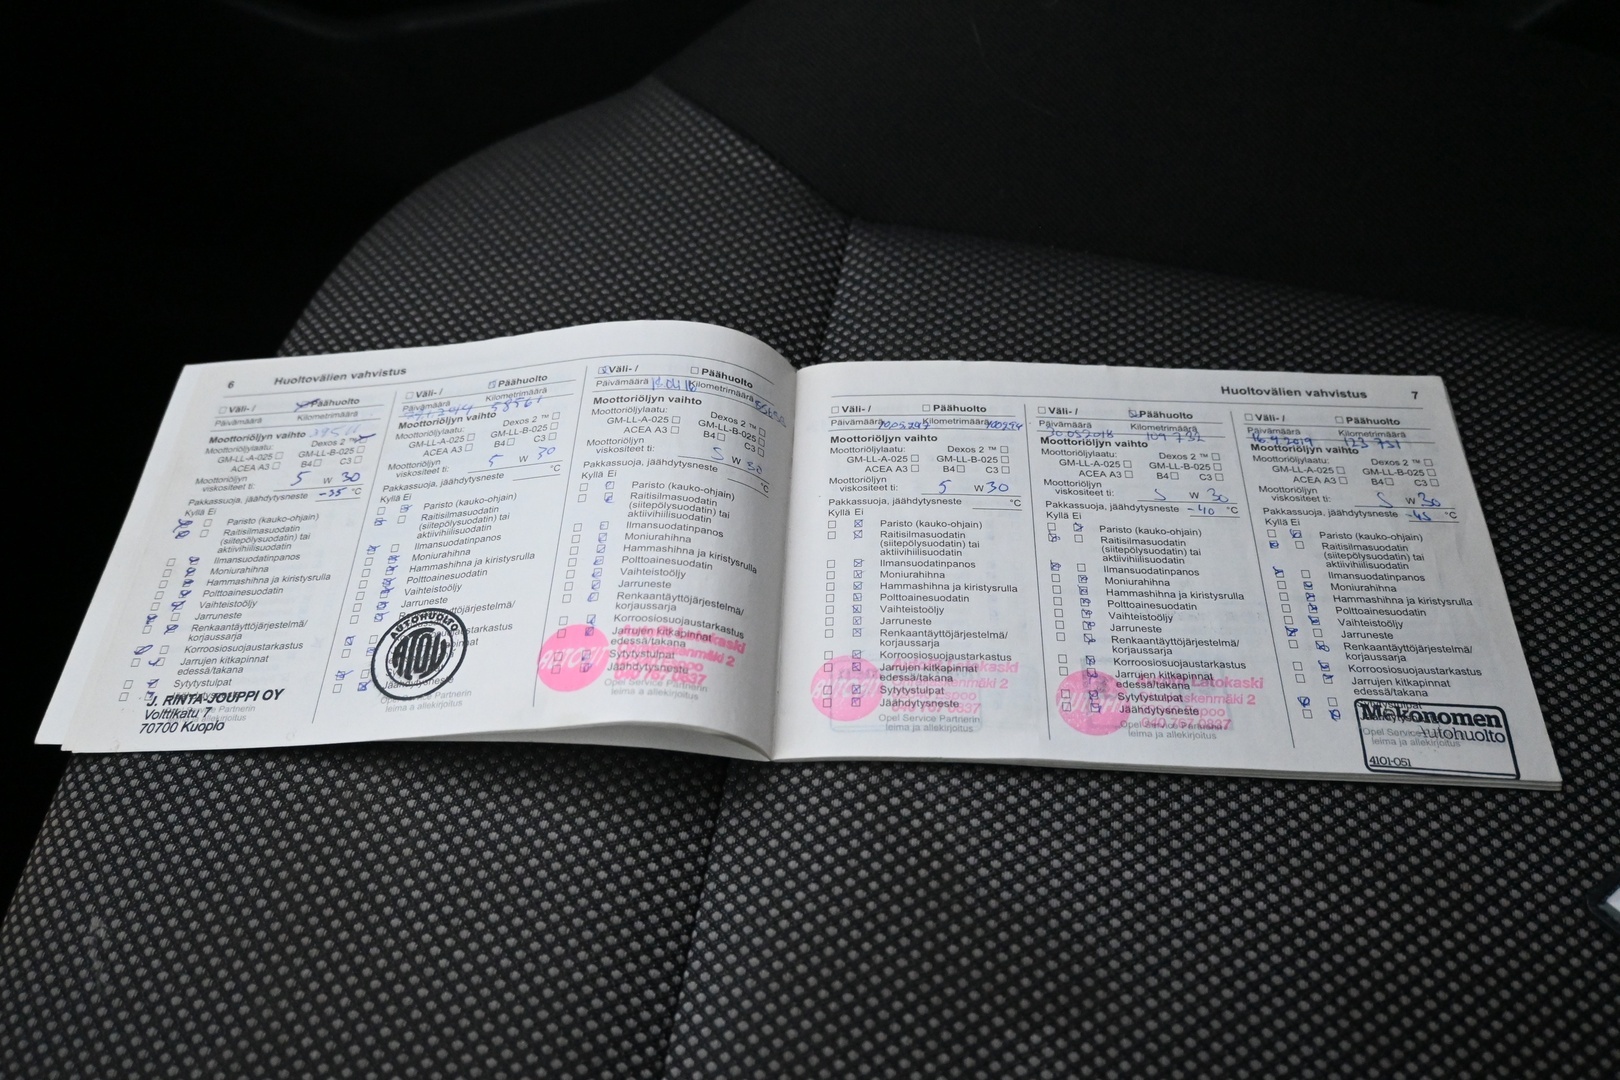 6 Huoltovälien vahvistus
Väli- / Päähuolto
Päivämäärä Kilometrimäärä
Moottoriöljyn vaihto
Moottoriöljylaatu: Dexos 2 ™
GM-LL-A-025 GM-LL-B-025
ACEA A3 B4 C3
Moottoriöljyn
viskositeet ti: 5 W 30
Pakkassuoja, jäähdytysneste -35 °C
Kyllä Ei
Paristo (kauko-ohjain)
Raitisilmasuodatin
(siitepölysuodatin) tai
aktiivihiilisuodatin
Ilmansuodatinpanos
Moniurahihna
Hammashihna ja kiristysrulla
Polttoainesuodatin
Vaihteistoöljy
Jarruneste
Renkaantäyttöjärjestelmä/
korjaussarja
Korroosiosuojaustarkastus
Jarrujen kitkapinnat
edessä/takana
Sytytystulpat
J. RINTA-JOUPPI OY
Volttikatu 7
70700 Kuopio
Väli- / Päähuolto
Päivämäärä Kilometrimäärä
58561
Moottoriöljyn vaihto
Moottoriöljylaatu: Dexos 2 ™
GM-LL-A-025 GM-LL-B-025
ACEA A3 B4 C3
Moottoriöljyn
viskositeet ti: 5 W 30
Pakkassuoja, jäähdytysneste °C
Kyllä Ei
Paristo (kauko-ohjain)
Raitisilmasuodatin
(siitepölysuodatin) tai
aktiivihiilisuodatin
Ilmansuodatinpanos
Moniurahihna
Hammashihna ja kiristysrulla
Polttoainesuodatin
Vaihteistoöljy
Jarruneste
AUTOHUOLTO
Opel Service Partnerin
leima ja allekirjoitus
Väli- / Päähuolto
Päivämäärä Kilometrimäärä
Moottoriöljyn vaihto
Moottoriöljylaatu: Dexos 2 ™
GM-LL-A-025 GM-LL-B-025
ACEA A3 B4 C3
Moottoriöljyn
viskositeet ti: 5 W 30
Pakkassuoja, jäähdytysneste °C
Kyllä Ei
Paristo (kauko-ohjain)
Raitisilmasuodatin
(siitepölysuodatin) tai
aktiivihiilisuodatin
Ilmansuodatinpanos
Moniurahihna
Hammashihna ja kiristysrulla
Polttoainesuodatin
Vaihteistoöljy
Jarruneste
Renkaantäyttöjärjestelmä/
korjaussarja
Korroosiosuojaustarkastus
Jarrujen kitkapinnat
edessä/takana
Sytytystulpat
Jäähdytysneste
Opel Service Partnerin
leima a allekirjoitus
Huoltovälien vahvistus 7
Väli- / Päähuolto
Päivämäärä Kilometrimäärä
Moottoriöljyn vaihto
Moottoriöljylaatu: Dexos 2 ™
GM-LL-A-025 GM-LL-B-025
ACEA A3 B4 C3
Moottoriöljyn
viskositeet ti: 5 W 30
Pakkassuoja, jäähdytysneste °C
Kyllä Ei
Paristo (kauko-ohjain)
Raitisilmasuodatin
(siitepölysuodatin) tai
aktiivihiilisuodatin
Ilmansuodatinpanos
Moniurahihna
Hammashihna ja kiristysrulla
Polttoainesuodatin
Vaihteistoöljy
Jarruneste
Renkaantäyttöjärjestelmä/
korjaussarja
Korroosiosuojaustarkastus
Jarrujen kitkapinnat
edessä/takana
Sytytystulpat
Jäähdytysneste
Opel Service Partnerin
leima a allekirjoitus
Väli- / Päähuolto
Päivämäärä Kilometrimäärä
30.05.2018 109 732
Moottoriöljyn vaihto
Moottoriöljylaatu: Dexos 2 ™
GM-LL-A-025 GM-LL-B-025
ACEA A3 B4 C3
Moottoriöljyn
viskositeet ti: 5 W 30
Pakkassuoja, jäähdytysneste -40 °C
Kyllä Ei
Paristo (kauko-ohjain)
Raitisilmasuodatin
(siitepölysuodatin) tai
aktiivihiilisuodatin
Ilmansuodatinpanos
Moniurahihna
Hammashihna ja kiristysrulla
Polttoainesuodatin
Vaihteistoöljy
Jarruneste
Renkaantäyttöjärjestelmä/
korjaussarja
Korroosiosuojaustarkastus
Jarrujen kitkapinnat
edessä/takana
Sytytystulpat
Jäähdytysneste
040 767 0837
leima ja allekirjoitus
Väli- / Päähuolto
Päivämäärä Kilometrimäärä
16.9.2019 123 731
Moottoriöljyn vaihto
Moottoriöljylaatu: Dexos 2 ™
GM-LL-A-025 GM-LL-B-025
ACEA A3 B4 C3
Moottoriöljyn
viskositeet ti: 5 W 30
Pakkassuoja, jäähdytysneste -45 °C
Kyllä Ei
Paristo (kauko-ohjain)
Raitisilmasuodatin
(siitepölysuodatin) tai
aktiivihiilisuodatin
Ilmansuodatinpanos
Moniurahihna
Hammashihna ja kiristysrulla
Polttoainesuodatin
Vaihteistoöljy
Jarruneste
Renkaantäyttöjärjestelmä/
korjaussarja
Korroosiosuojaustarkastus
Jarrujen kitkapinnat
edessä/takana
Mekonomen
Autohuolto
leima ja allekirjoitus
4101-051